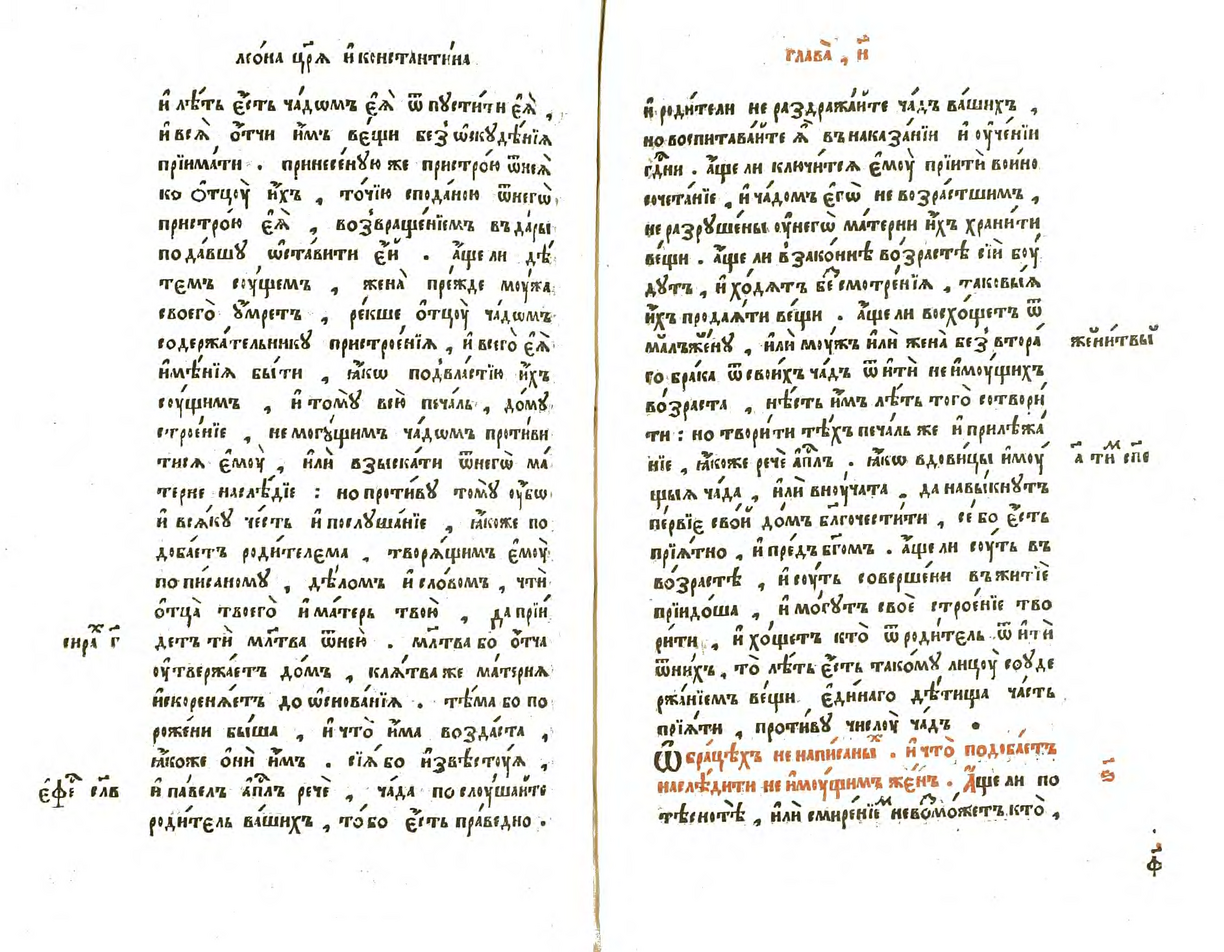 лео́на цр҃ѧ и҆ константи́на
и҆ лѣ́ть є҆́сть ча́дѡмъ є҆ѧ̀ ѿпꙋсти́ти є҆ѧ̀ ,
и҆ всѧ̀ ѻ҆́тчи и҆̀мъ ве́щи без̾ѡ҆скꙋдѣ́нїѧ
прїима́ти . принесе́нꙋю же пристро́ю ѿнеѧ̀
ко ѻ҆тцоу̀ и҆́хъ , то́чїю сподано́ю ѿнегѡ̀
пристро́ю є҆ѧ̀ , воз̾враще́нїемъ въ да́ры
пода́вшꙋ ѡ҆ста́вити є҆́й . а҆́ще ли дѣ́
темъ соу́щемъ , жена̀ пре́жде моу́жа
своего̀ ᲂу҆́мретъ , ре́кше ѻ҆тцоу̀ ча́дѡмъ
содержа́тельникꙋ пристрое́нїѧ , и҆ всего̀ є҆ѧ̀
и҆мѣ́нїѧ бы́ти , ꙗ҆́кѡ под̾вла́стїю и҆́хъ
соу́щимъ , и҆ томꙋ̀ всю̀ печа́ль , до́мꙋ
строе́нїе , не могꙋ́щимъ ча́дѡмъ проти́ви
тисѧ є҆моу̀ , и҆лѝ взыска́ти ѿнегѡ̀ ма́
терне наслѣ́дїе : но проти́вꙋ томꙋ̀ ᲂу҆́бѡ
и҆ всѧ́кꙋ че́сть и҆ послꙋша́нїе , ꙗ҆́коже по
доба́етъ роди́телема , творѧ́щимъ є҆моу̀
по пи́саномꙋ , дѣ́ломъ и҆ сло́вомъ , чтѝ
ѻ҆тца̀ твоего̀ и҆ ма́терь твою̀ , да прїи́
сира́х г҃
детъ тѝ мл҃тва ѿнею̀ . мл҃тва бо ѻ҆́тча
ᲂу҆твержа́етъ до́мъ , клѧ́тва же ма́терня
и҆скоренѧ́етъ до ѡ҆снова́нїѧ . тѣ́ма бо по
роже́ни бы́ша , и҆ что̀ и҆́ма возда́ста ,
ꙗ҆́коже ѻ҆нѝ и҆̀мъ . сїѧ̀ бо и҆звѣстоу́ѧ ,
є҆фе҃ сл҃в
и҆ па́велъ а҆пл҃ъ речѐ , ча́да послоу́шайте
роди́тель ва́шихъ , то́ бо є҆́сть пра́ведно .
глава̀ , и҃
и҆ роди́тели не раздража́йте ча́дъ ва́шихъ ,
но воспита́вайте ѧ҆̀ въ наказа́нїи и҆ ᲂу҆че́нїи
гд҃ни . а҆́ще ли ключи́тсѧ є҆моу̀ прїитѝ во и҆́но
сочета́нїе , и҆ ча́дом є҆гѡ̀ не возра́стшимъ ,
не разрꙋше́ны ᲂу҆негѡ̀ ма́терни и҆́хъ храни́ти
ве́щи . а҆́ще ли в̾зако́ннѣ во́зрастѣ сїѝ боу́
дꙋтъ , и҆ хо́дѧтъ без̾смотре́нїѧ , таковы́ѧ
и҆́хъ продаѧ́ти ве́щи . а҆́ще ли восхо́щетъ ѿ
ма́лъже́нꙋ , и҆лѝ моу́жъ и҆лѝ жена̀ без̾ втора́
жени́твы
го бра́ка ѿ свои́хъ ча́дъ ѿитѝ не и҆моу́щихъ
во́зраста , нѣ́сть и҆̀мъ лѣ́ть того̀ сотвори́
ти : но твори́ти тѣ́хъ печа́ль же и҆ прилѣжа́
нїе , ꙗ҆́коже речѐ а҆пл҃ъ . ꙗ҆́кѡ вдови́цы и҆моу́
а҃ тим спе
щыѧ ча́да , и҆лѝ вноу́чата , да навы́кнꙋтъ
пе́рвїе сво́й до́мъ бл҃гочести́ти , се́ бо є҆́сть
прїѧ́тно , и҆ предъ бг҃омъ . а҆́ще ли соу́ть въ
во́зрастѣ , и҆ соу́ть соверше́ни въ житїѐ
прїидо́ша , и҆ мо́гꙋтъ своѐ строе́нїе тво
ри́ти , и҆ хо́щетъ кто̀ ѿ роди́тель ѿитѝ
ѿни́хъ , то̀ лѣ́ть є҆́сть такомꙋ̀ лицоу̀ соуде
ржа́нїемъ ве́щи є҆ди́наго дѣ́тища ча́сть
прїѧ́ти , проти́вꙋ числоу̀ ча́дъ .
Ѿ бра́цѣхъ не написаны́х . и҆ что̀ подоба́етъ
наслѣ́дити не и҆моу́щимъ же́нъ . А҆́ще ли по
ѕ҃
тѣснотѣ̀ , и҆лѝ смире́нїем невозмо́жетъ кто̀ ,
ф҃